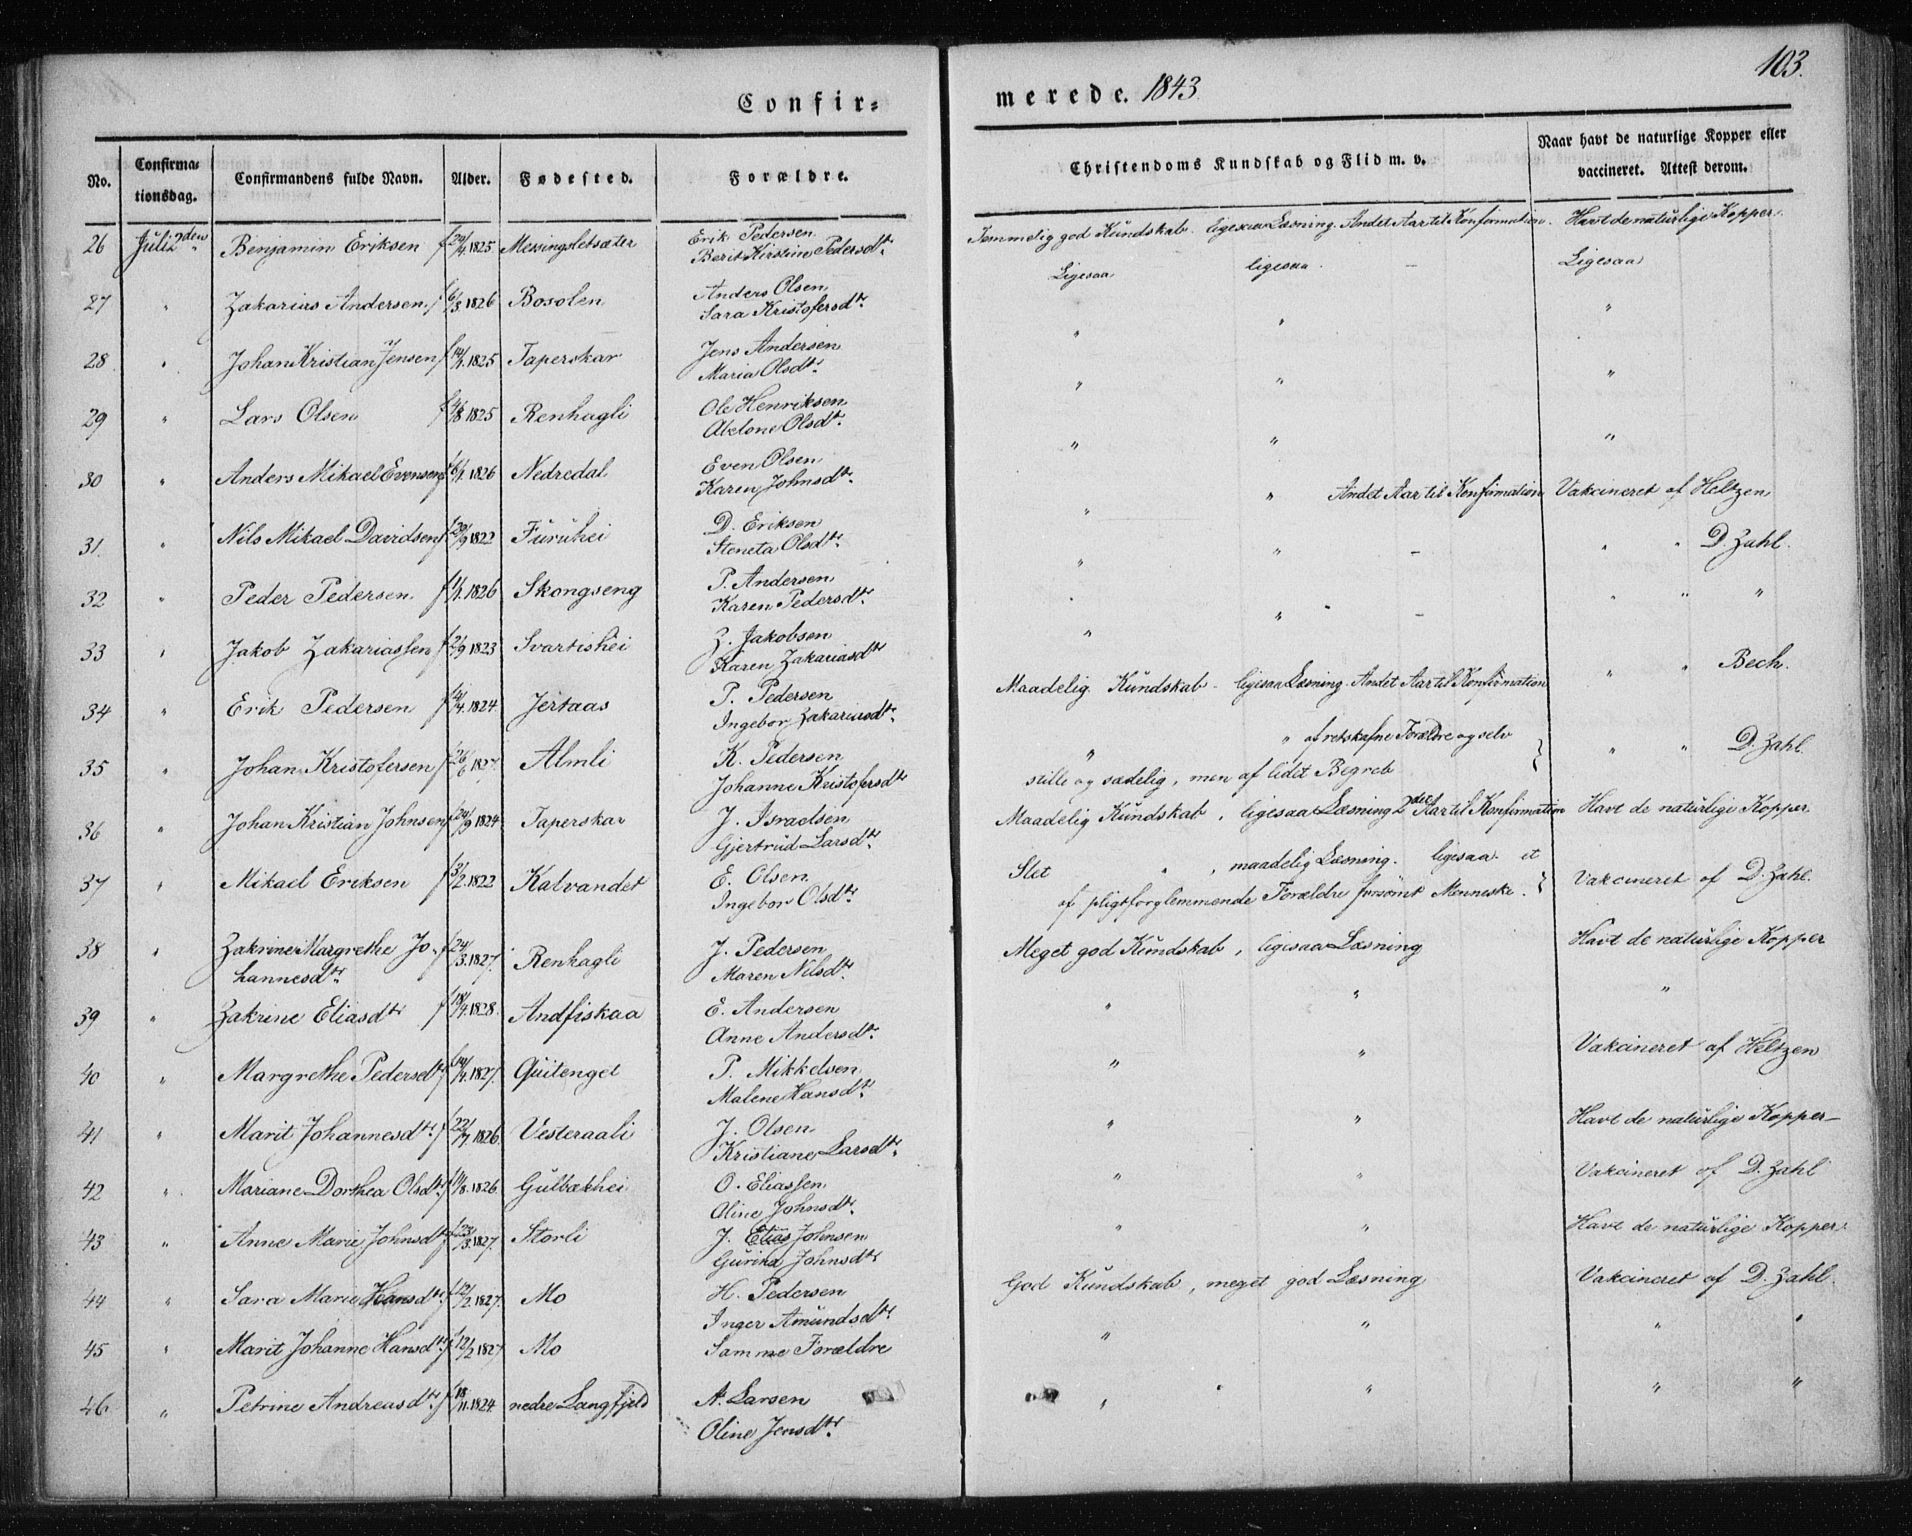 103.
Confir= merede. 1843
No. Confirma= tionsdag. Confirmandens fulde Navn. Alder. Fødested. Forældre. Christendoms Kundskab og Flid m. v. Naar havt de naturlige Kopper eller vaccineret. Attest derom.
26 Juli 2den Benjamin Eriksen 1825 Messingsletsæter Erik Pedersen Temmelig god Kundskab. ligesaa Læsning. Andet Aar til Konfirmation. Havt de naturlige Kopper.
Berit Kirstine Pedersdtr.
27 " Zakarias Andersen f 6/3. 1826 Bosolen Anders Olsen Ligesaa ligesaa. – Ligesaa
Sara Kristofersdtr.
28 " Johan Kristian Jensen 1825 Taperskar Jens Andersen " " "
Maria Olsdtr.
29 " Lars Olsen 1825 Renhagli Ole Henriksen " " "
Abelone Olsdtr.
30 " Anders Mikael Evensen 1826 Nedredal Even Olsen " " "
Karen Johnsdtr.
31. " Nils Mikael Davidsen 1822 Furuhei D. Eriksen " " Andet Aar til Konfirmation Vakcineret af Heltzen
Steneta Olsdtr.
32 " Peder Pedersen 1826 Skongseng P. Andersen " " – " " D. Zahl.
Karen Pedersdtr.
33 " Jakob Zakariassen 1823 Svartishei Z. Jakobsen " " – " " "
Karen Zakariasdtr
34 " Erik Pedersen 1824 Jertaas P. Pedersen Maadelig Kundskab – ligesaa Læsning. Andet Aar til Konfirmation " " Bech.
Ingebor Zakariasdtr.
35 " Johan Kristofersen f 26/6 1827. Almli K. Pedersen " " af retskafne Forældre og selv " " D. Zahl
Johanne Kristofersdtr stille og sædelig, men af lidet Begreb
36 " Johan Kristian Johnsen 1824 Taperskar J. Israelsen Maadelig Kundskab, ligesaa Læsning 2det Aar til Konfirmation Havt de naturlige Kopper
Gjertrud Larsdtr.
37 " Mikael Eriksen 1822 Kalvandet E. Olsen Slet " , maadelig Læsning. ligesaa. et Vakcineret af D. Zahl.
Ingebor Olsdtr. af pligtforglemmende Forældre forsømt Menneske.
38 " Zakrine Margrethe Jo- f 24/3. 1827. Renhagli J. Pedersen Meget god Kundskab, ligesaa Læsning Havt de naturlige Kopper
hannesdtr Maren Nilsdtr.
39 " Zakrine Eliasdtr f 18/4. 1828. Andfiskaa E. Andersen " " "
Anne Andersdtr.
40 " Margrethe Pedersdtr 1827. Quitenget P. Mikkelsen " " Vakcineret af Heltzen
Malene Hansdtr.
41 " Marit Johannesdtr. f 22/7. 1826. Vesteraali J. Olsen " " Havt de naturlige Kopper –
Kristiane Larsdtr.
42 " Mariane Dorthea Olsdtr. 1826 Gulbækhei O. Eliassen " " Vakcineret af D. Zahl
Oline Johnsdtr.
43 " Anne Marie Johnsdtr f 23/3. 1827. Storli J. Elias Johnsen " " Havt de naturlige Kopper.
Gurina Johnsdtr
44 " Sara Marie Hansdtr. f 12/2. 1827. Mo H. Pedersen God Kundskab, meget god Læsning Vakcineret af D. Zahl.
Inger Amundsdtr
45 " Marit Johanne Hansdtr. f 12/2 1827 Mo Samme Forældre " " " "
46 " Petrine Andreasdtr. f 18/11. 1824. nedre Langfjeld A. Larsen " " " "
Oline Jensdtr.